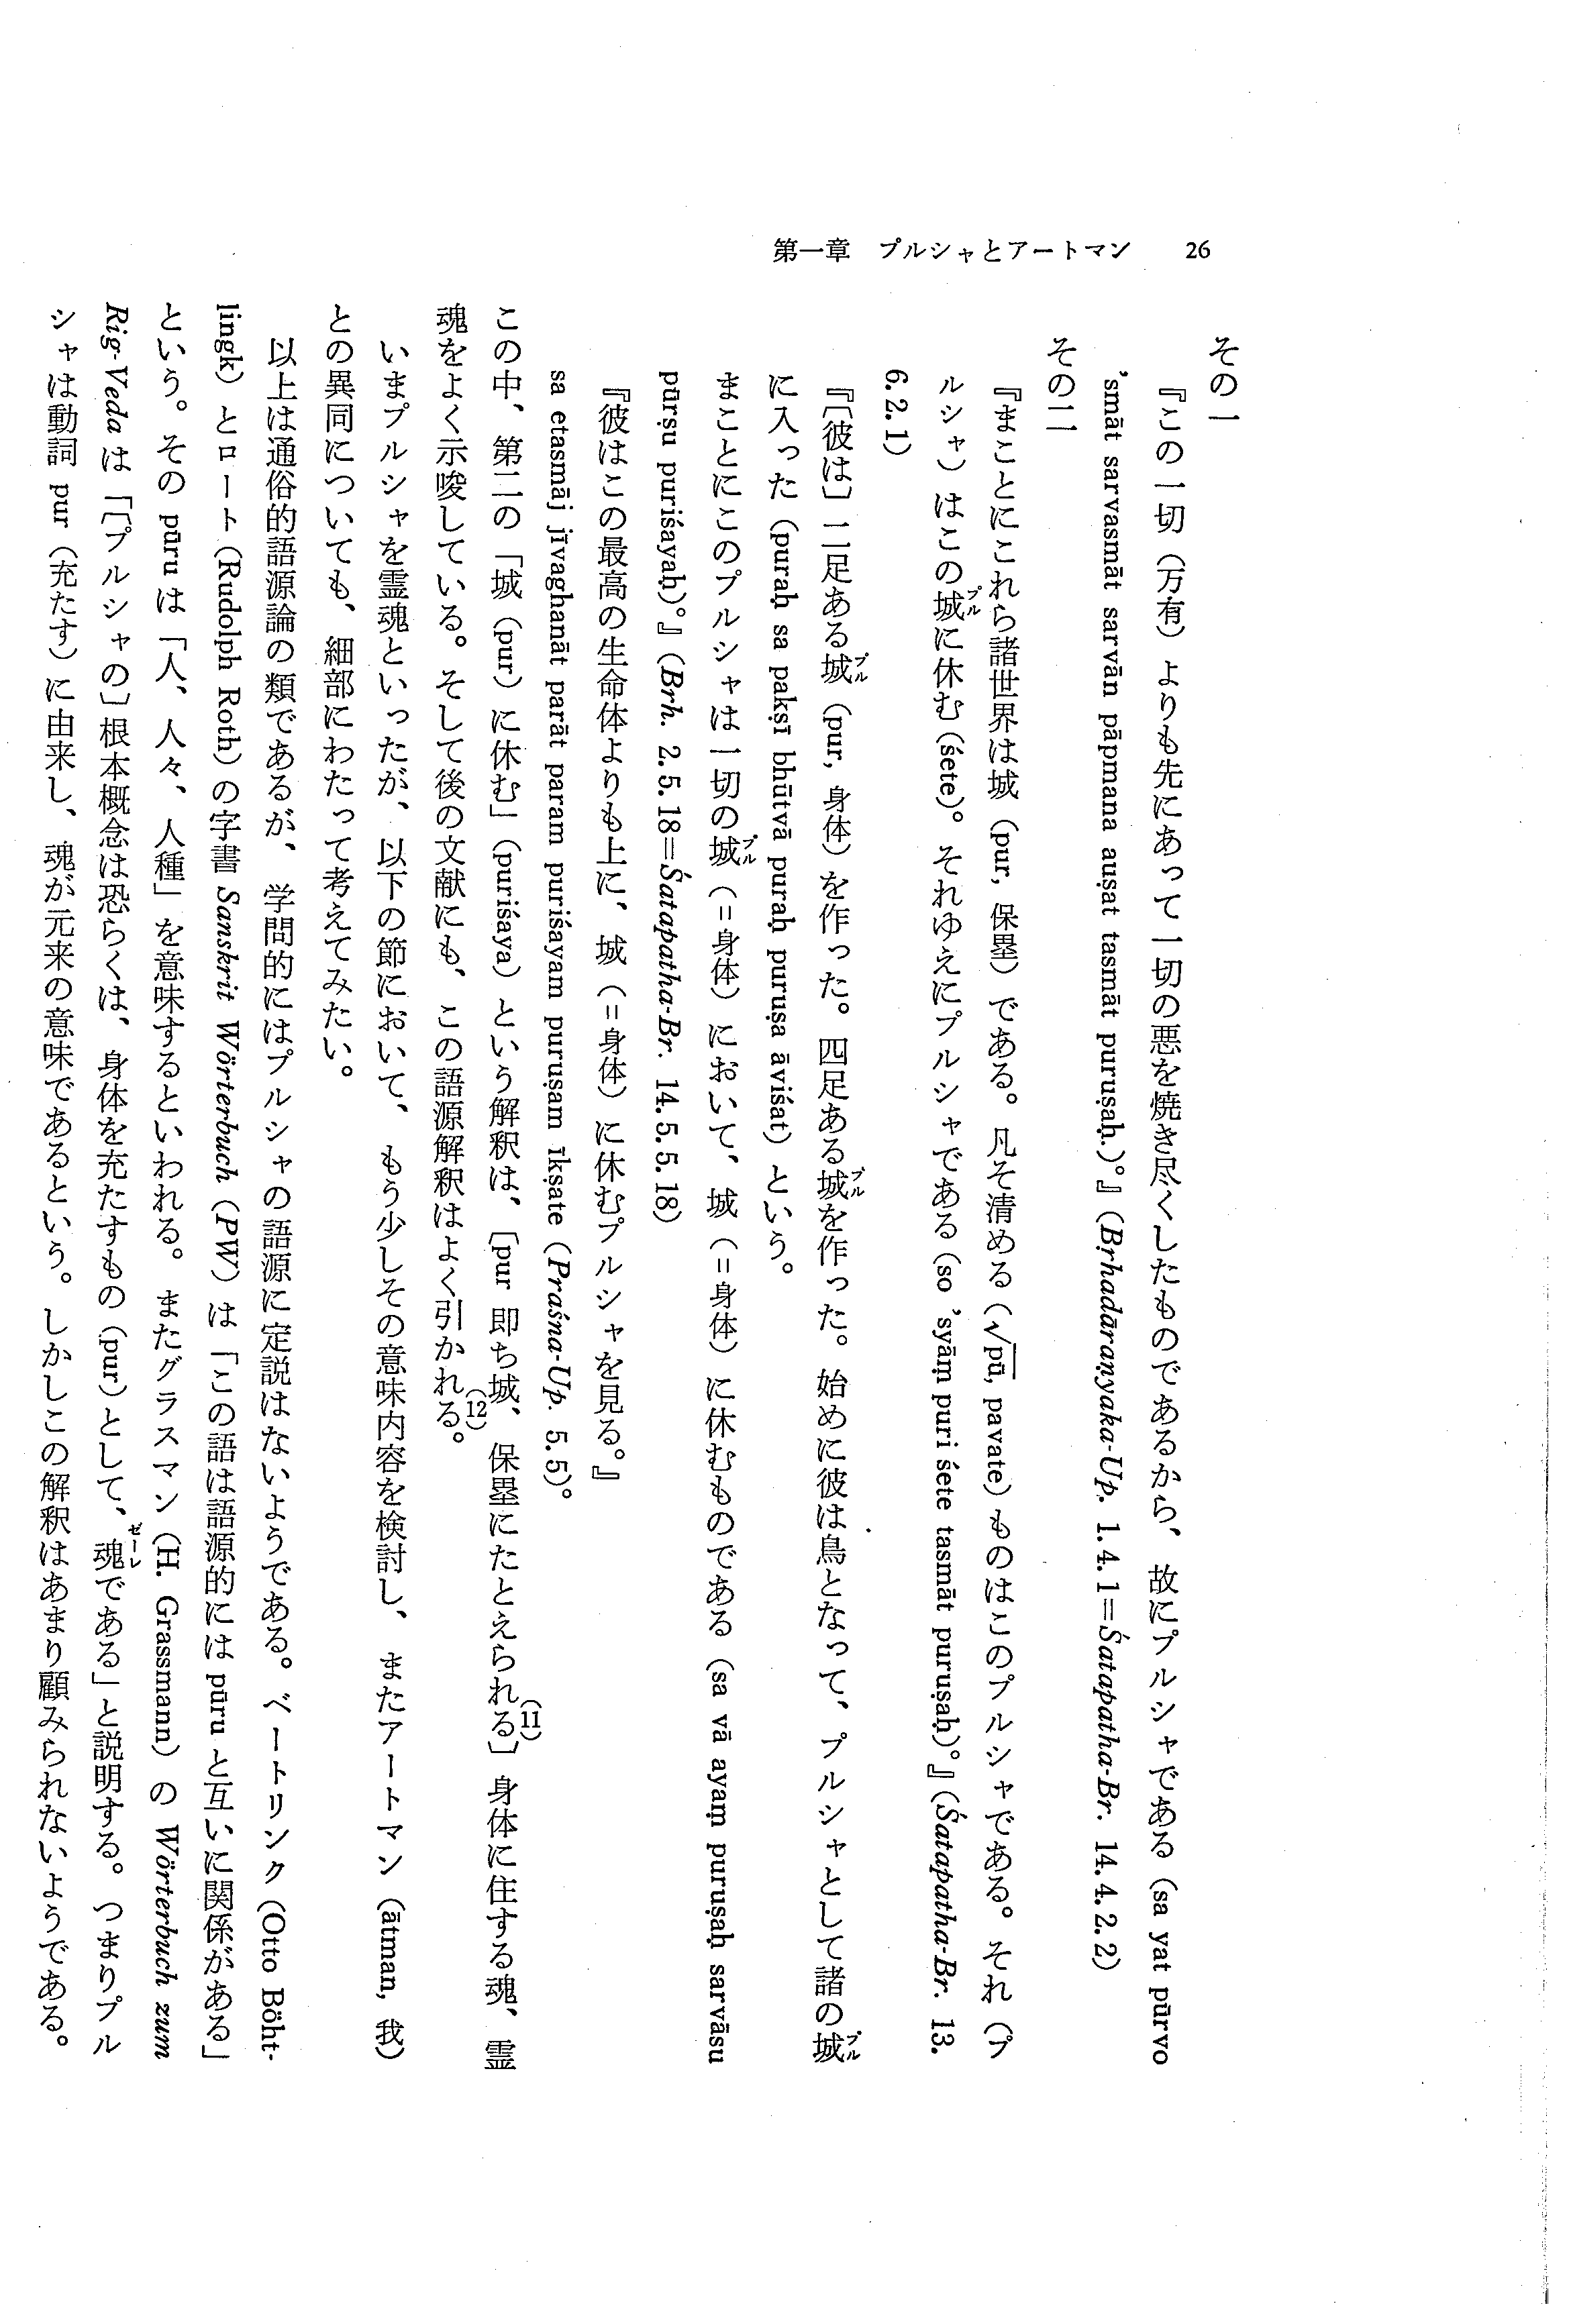 第一章　プルシャとアートマン　26
その一
『この一切（万有）よりも先にあって一切の悪を焼き尽くしたものであるから、故にプルシャである（sa yat pūrvo
’smāt sarvasmāt sarvān pāpmana auṣat tasmāt puruṣaḥ.）。』（Bṛhadāraṇyaka-Up. 1. 4. 1＝Śatapatha-Br. 14. 4. 2. 2）
その二
『まことにこれら諸世界は城（pur, 保塁）である。凡そ清める（√pū, pavate）ものはこのプルシャである。それ（プ
ルシャ）はこの城プルに休む（śete）。それゆえにプルシャである（so ’syāṃ puri śete tasmāt puruṣaḥ）。』（Śatapatha-Br. 13.
6. 2. 1）
『〔彼は〕二足ある城プル（pur, 身体）を作った。四足ある城プルを作った。始めに彼は鳥となって、プルシャとして諸の城プル
に入った（puraḥ sa pakṣī bhūtvā puraḥ puruṣa āviśat）という。
まことにこのプルシャは一切の城プル（＝身体）において、城（＝身体）に休むものである（sa vā ayaṃ puruṣaḥ sarvāsu
pūrṣu puriśayaḥ）。』（Bṛh. 2. 5. 18＝Śatapatha-Br. 14. 5. 5. 18）
『彼はこの最高の生命体よりも上に、城（＝身体）に休むプルシャを見る。』
sa etasmāj jīvaghanāt parāt param puriśayam puruṣam īkṣate（Praśna-Up. 5. 5）。
この中、第二の「城（pur）に休む」（puriśaya）という解釈は、〔pur 即ち城、保塁にたとえられる(11)〕身体に住する魂、霊
魂をよく示唆している。そして後の文献にも、この語源解釈はよく引かれる(12)。
いまプルシャを霊魂といったが、以下の節において、もう少しその意味内容を検討し、またアートマン（ātman, 我）
との異同についても、細部にわたって考えてみたい。
以上は通俗的語源論の類であるが、学問的にはプルシャの語源に定説はないようである。ベートリンク（Otto Böht-
lingk）とロート（Rudolph Roth）の字書 Sanskrit Wörterbuch（PW）は「この語は語源的には pūru と互いに関係がある」
という。その pūru は「人、人々、人種」を意味するといわれる。またグラスマン（H. Grassmann）の Wörterbuch zum
Rig-Veda は「〔プルシャの〕根本概念は恐らくは、身体を充たすもの（pur）として、魂ゼーレである」と説明する。つまりプル
シャは動詞 pur（充たす）に由来し、魂が元来の意味であるという。しかしこの解釈はあまり顧みられないようである。